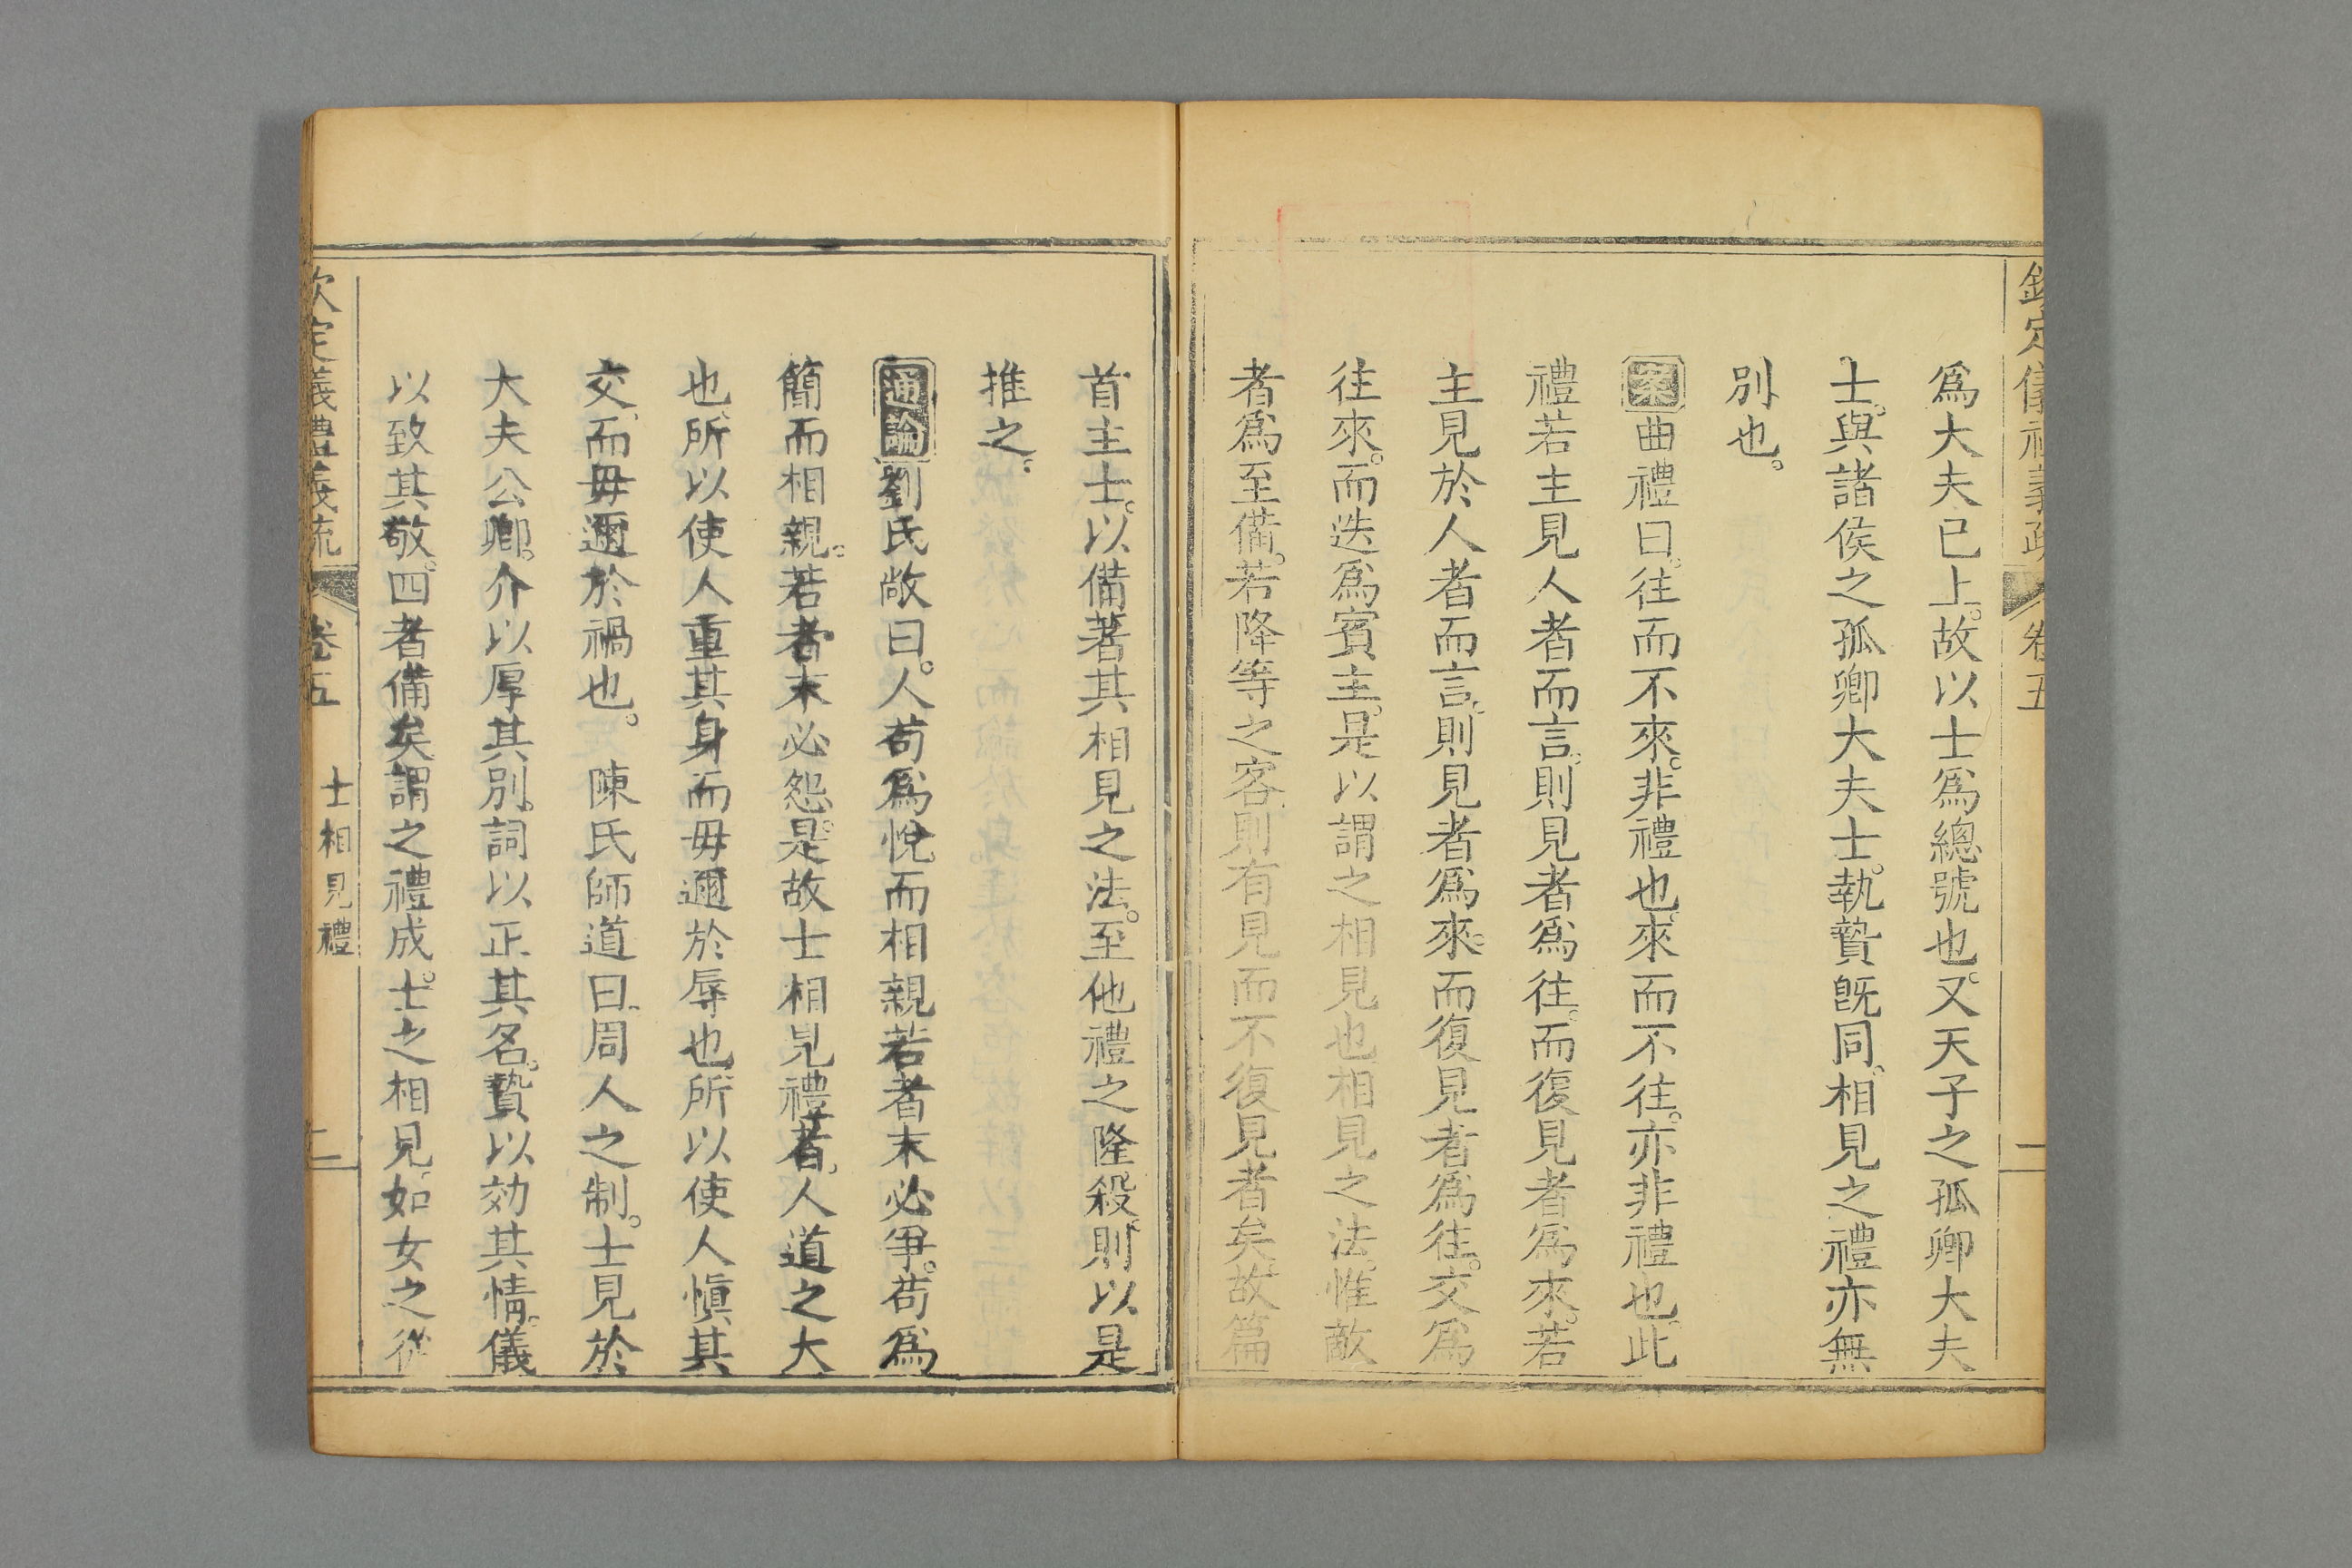 欽定儀禮義疏 卷五 一
爲大夫已上。故以士爲總號也。又天子之孤卿大夫
士。與諸侯之孤卿大夫士。執贄旣同。相見之禮亦無
別也。
案曲禮曰。往而不來。非禮也。來而不往。亦非禮也。此
禮若主見人者而言。則見者爲往。而復見者爲來。若
主見於人者而言。則見者爲來。而復見者爲往。交爲
往來。而迭爲賓主。是以謂之相見也。相見之法。惟敵
者爲至備。若降等之客。則有見而不復見者矣。故篇
首主士。以備著其相見之法。至他禮之隆殺。則以是
推之。
通論劉氏敞曰。人苟爲悅而相親。若者末必爭。苟爲
簡而相親。若者末必怨。是故士相見禮者。人道之大
也。所以使人重其身而毋邇於辱也。所以使人愼其
交。而毋邇於禍也。 陳氏師道曰。周人之制。士見於
大夫公卿。介以厚其別。詞以正其名。贄以効其情。儀
以致其敬。四者備矣。謂之禮成。士之相見。如女之從
欽定儀禮義疏 卷五 士相見禮 二